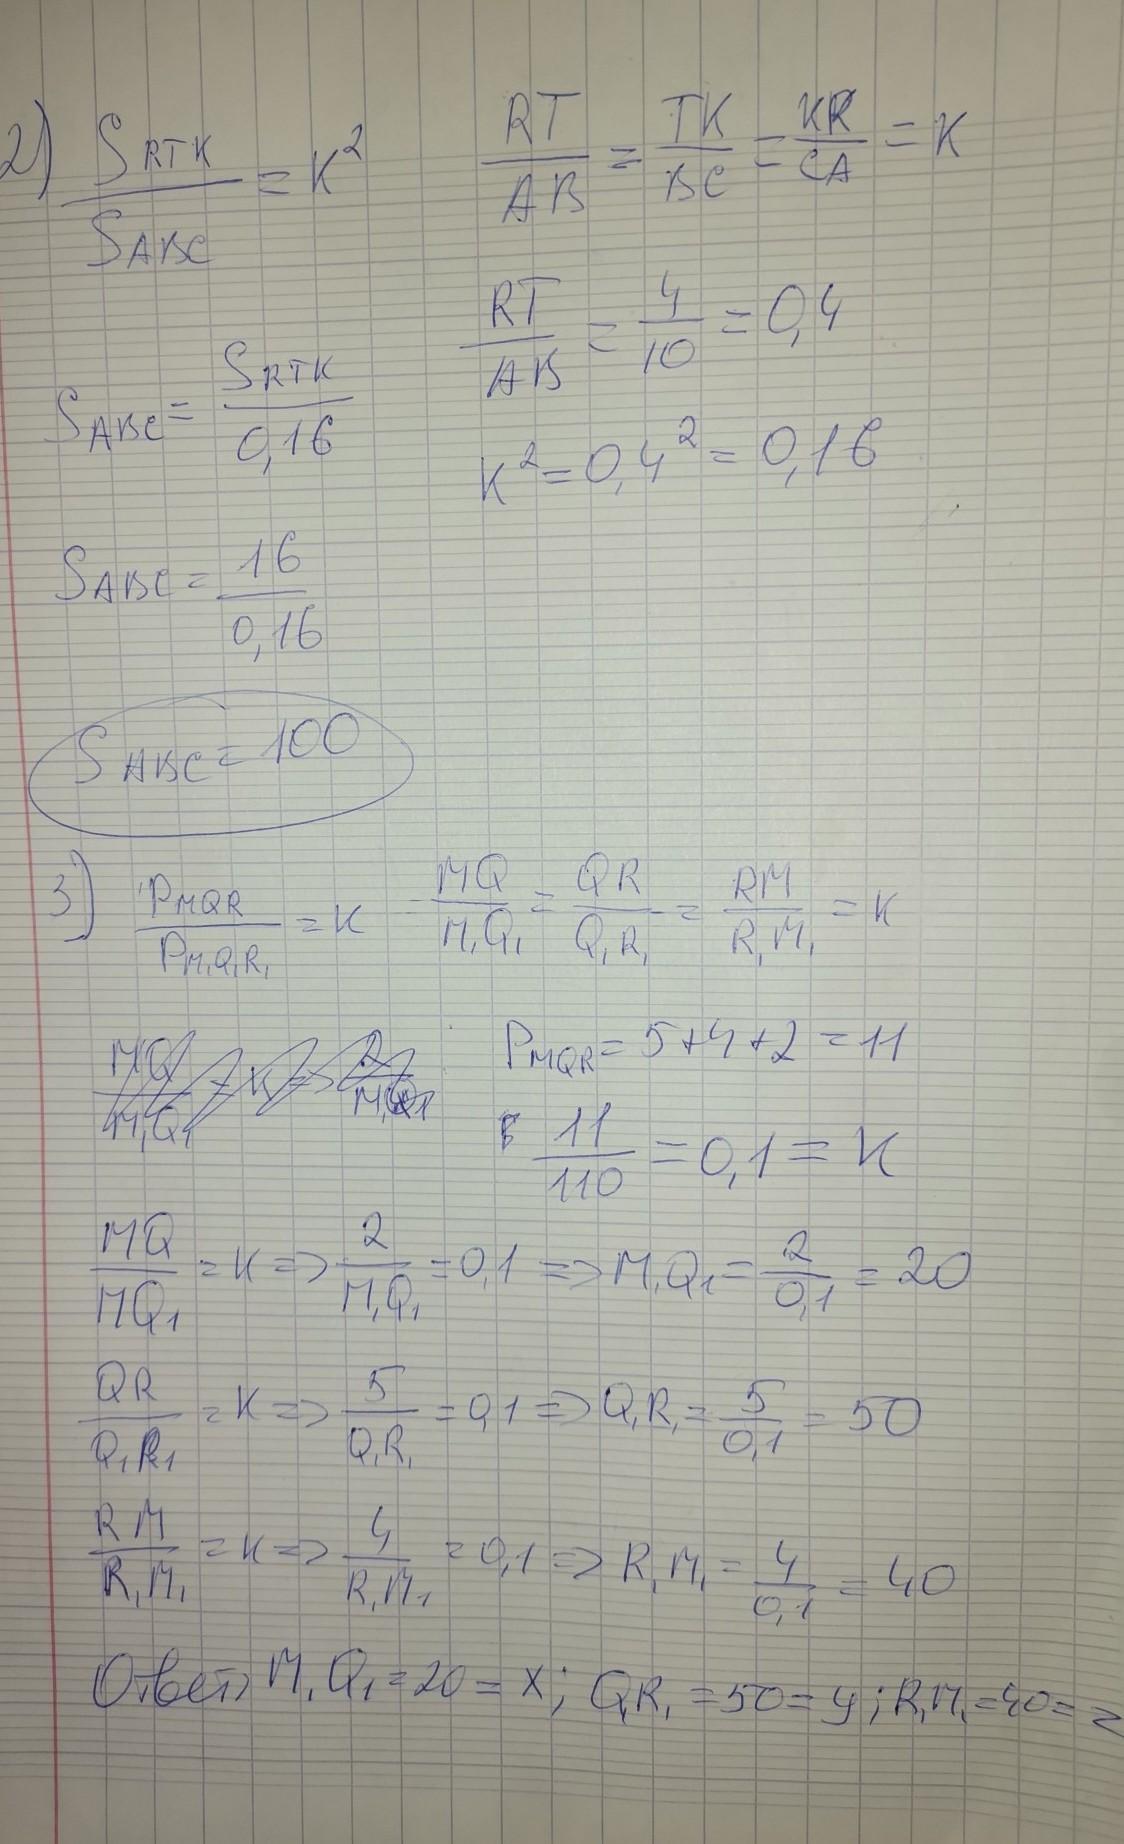 2) S_RTK / S_ABC = K² RT/AB = TK/BC = KR/CA = K
RT/AB = 4/10 = 0,4
S_ABC = S_RTK / 0,16
K² = 0,4² = 0,16
S_ABC = 16/0,16
S_ABC = 100
3) P_MQR / P_M₁Q₁R₁ = K MQ/M₁Q₁ = QR/Q₁R₁ = RM/R₁M₁ = K
P_MQR = 5+4+2 = 11
11/110 = 0,1 = K
MQ/MQ₁ = K => 2/M₁Q₁ = 0,1 => M₁Q₁ = 2/0,1 = 20
QR/Q₁R₁ = K => 5/Q₁R₁ = 0,1 => Q₁R₁ = 5/0,1 = 50
RM/R₁M₁ = K => 4/R₁M₁ = 0,1 => R₁M₁ = 4/0,1 = 40
Ответ: M₁Q₁ = 20 = x; QR₁ = 50 = y; R₁M₁ = 40 = z